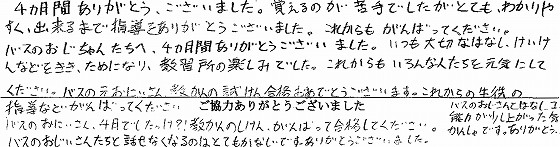 4カ月間ありがとう、ございました。覚えるのが苦手でしたがとても、わかりや
すく、出来るまで指導をありがとうございました。これからもがんばってください。
バスのおじちゃんたちへ、4カ月間ありがとうございました。いつも大切なはなし、けいけ
んなどをきき、ためになり、教習所の楽しみでした。これからもいろんな人たちを元気にして
ください。バスの元おにいさん、教かんの試けん合格おめでとうございます。これからの生徒の
指導などがんばってください
ご協力ありがとうございました
バスのおにいさん、4月でしたっけ?!教かんのしけん、がんばって合格してください。
バスのおじいさんたちと話せなくなるのはとてもかなしいです。ありがとうございました。
バスのおじさんてはなして
能力が少し上がったきが
かんしゃです。ありがとう。